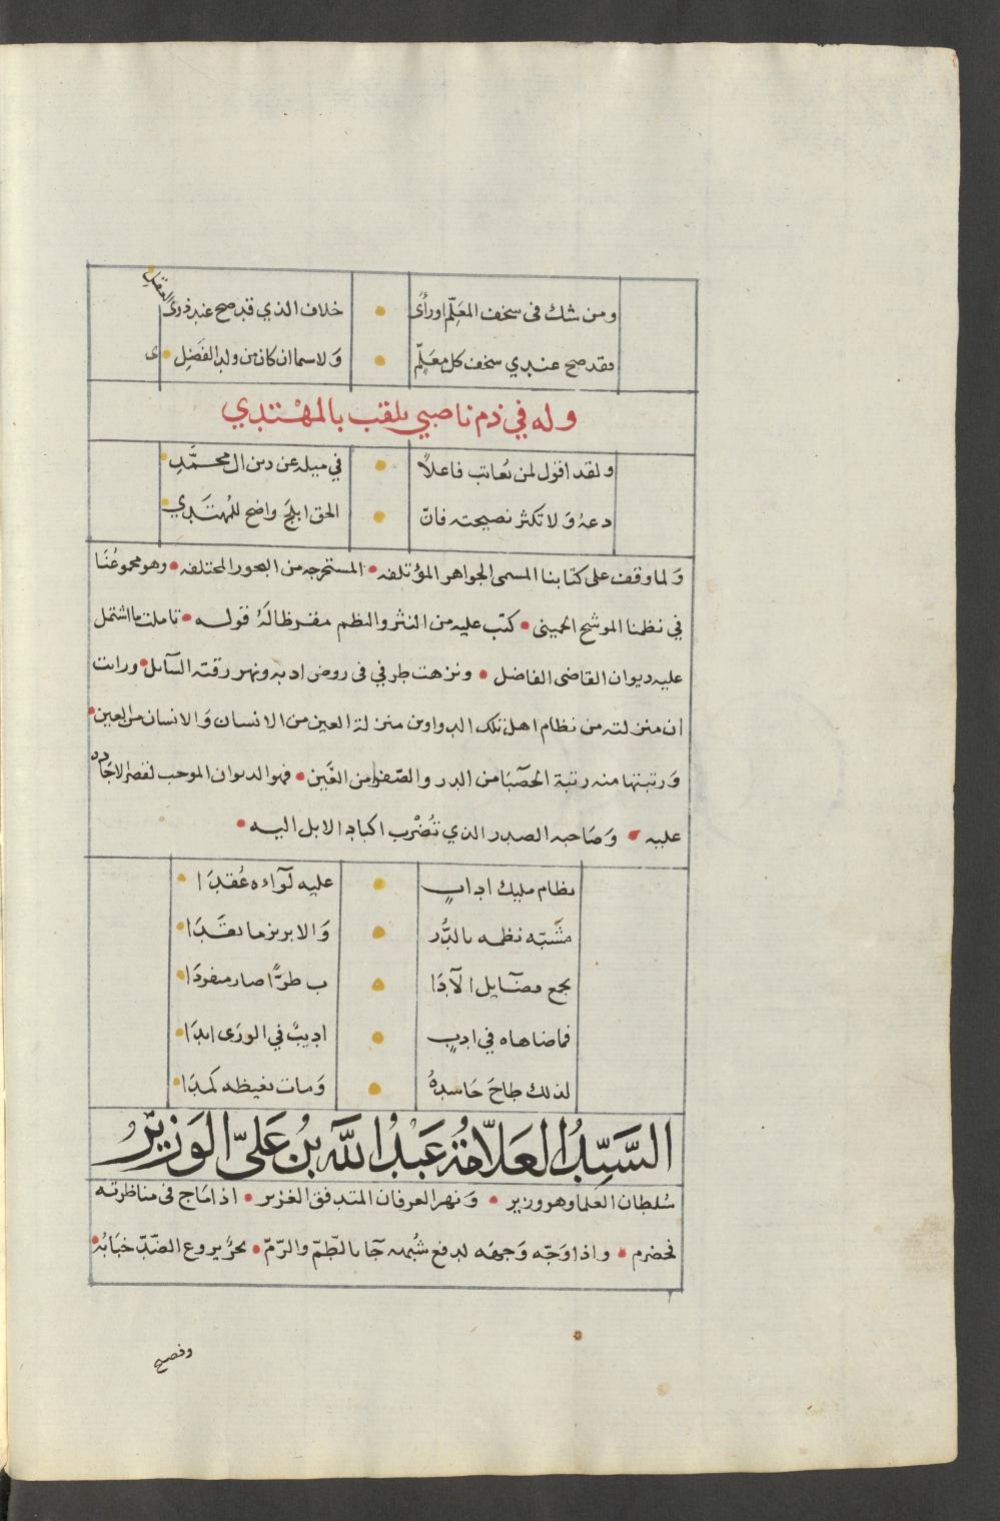 ومن شك في سخف المعلّم اورأى • خلاف الذي قد صح عند ذوى العقل
فقد صح عندي سخف كل معلّم • وَلا سيما ان كان من ولد الفَضِل
وله في ذم ناصبي يلقب بالمهْتَدِي
ولقد اقول لمن يُعاتب فاعلاً • في ميله عن دين ال محمَّدِ
دعهُ وَلا تكثر نصيحته فانّ • الحق ابلجَ واضح للمُهتَدِي
وَلما وقف على كتابنا المسمى الجواهر المؤتلفه • المستخرجه من البحور المختلفه • وهو مجموعُنَا
في نظمنا الموشح الحميني • كتب عليه من النثر والنظم مقرظا لَهُ قوله • تاملت ما اشتمل
عليه ديوان القاضى الفاضل • ونزهت طرفي فى روض ادبه ونهر رقته السآىل • ورايت
ان منزلته من نظام اهل تلك الدواوين منزلة العين من الانسان وَالانسان من العين •
وَرتبتها منه رتبة الحصَبَا من الدر والصّفر من العَين • فهو الديوان الموجب لقصر الاجَادة
عليه • وَصَاحبه الصدر الذي تُضْرب اكباد الابل اليه •
نظام مليك ادابٍ • عليه لوآءه عُقدَا
مشَبّه نظمه بالدُّر • وَالابريز ما نقَدَا
بجمع فضآيل الآدَا • ب طرًّا صار منفردَا
فما ضاهاه في ادبٍ • اديبٌ في الورَى ابدَا
لذلك طاحَ حَاسدهُ • وَمات بغيظه كمَدَا
السَّيِّدُ العَلاّمَةُ عَبْدُ اللَّه بْنُ عَلىّ الوَزيْرُ
سُلطان العُلما وهو وزير • وَنهر العرفان المتدفق الغزير • اذا مَاج فى مناظرته
فخضرم • واذا وَجّه وَجهَه لدفع شُبهه جَا بالطّمّ والرّمّ • بحرٌ يروع الضّدّ خبَابُه •
وفصيح